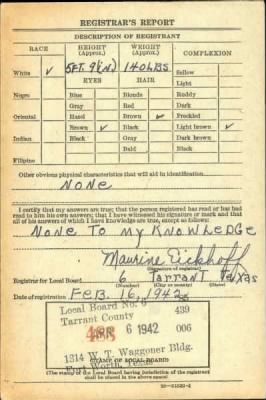 REGISTRAR'S REPORT
DESCRIPTION OF REGISTRANT
RACE HEIGHT (Approx.) WEIGHT (Approx.) COMPLEXION
White ✓ 5FT. 9 (IN) 140 LBS Sallow
EYES HAIR Light
Negro Blue Blonde Ruddy
Gray Red Dark
Oriental Hazel Brown ✓ Freckled
Brown ✓ Black Light brown ✓
Indian Black Gray Dark brown
Bald Black
Filipino
Other obvious physical characteristics that will aid in identification
NONE
I certify that my answers are true; that the person registered has read or has had
read to him his own answers; that I have witnessed his signature or mark and that
all of his answers of which I have knowledge are true, except as follows:
NONE TO MY KNOWLEDGE
Maurine Eickhoff
(Signature of registrar)
Registrar for Local Board 6 Tarrant Texas
(Number) (City or county) (State)
Date of registration FEB. 16, 1942
Local Board No. 439
Tarrant County
APR 6 1942 006
1314 W. T. Waggoner Bldg.
Fort Worth, Texas
(STAMP OF LOCAL BOARD)
(The stamp of the Local Board having jurisdiction of the registrant
shall be placed in the above space.)